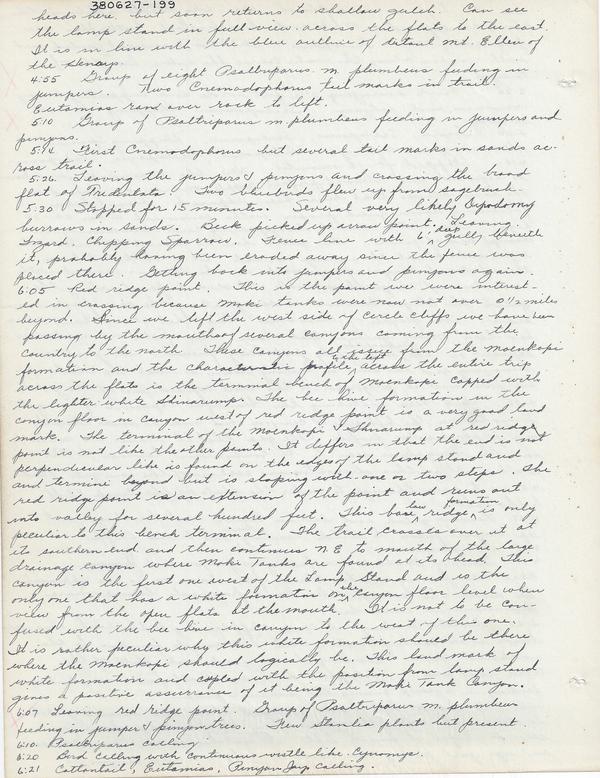 380627-199
heads here but soon returns to shallow gulch. Can see
the lamp stand in full view across the flats to the east.
It is in line with the blue outline of distant Mt. Ellen of
the Henrys.
4:55 Group of eight Psaltriparus m. plumbeus feeding in
junipers. Two Cnemodophorus tail marks in trail.
Eutamias ran over rock to left.
5:10 Group of Psaltriparus m. plumbeus feeding in junipers and
pinyons.
5:14 First Cnemodophorus but several tail marks in sands ac-
ross trail.
5:26 Leaving the junipers & pinyons and crossing the broad
flat of Tridentata. Two bluebirds flew up from sagebrush.
5:30 Stopped for 15 minutes. Several very likely Dipodomy
burrows in sands. Beck picked up arrow point. Leaving.
Lizard. Chipping Sparrow. Fence line with 6' deep gully beneath
it, probably having been eroded away since the fence was
placed there. Getting back into junipers and pinyons again.
6:05 Red ridge point. This is the point we were interest-
ed in crossing because Moki tanks were now not over 0½ miles
beyond. Since we left the west side of circle cliffs we have been
passing by the mouths of several canyons coming from the
country to the north. These canyons all issue from the Moenkopi
formation and the characteristic profile to the left across the entire trip
across the flats is the terminal bench of Moenkopi capped with
the lighter white Shinarump. The bee hive formation in the
canyon floor in canyon west of red ridge point is a very good land
mark. The terminal of the Moenkopi & Shinarump at red ridge
point is not like the other points. It differs in that the end is not
perpendicular like is found on the edges of the lamp stand and
and termine beyond but is sloping with one or two steps. The
red ridge point is an extension of the point and runs out
into valley for several hundred feet. This base low ridge formation is only
peculiar to this bench terminal. The trail crosses over it at
its southern end and then continues N.E. to mouth of the large
drainage canyon where Moki Tanks are found at its head. This
canyon is the first one west of the Lamp Stand and is the
only one that has a white formation on the canyon floor level when
view from the open flats at the mouth. It is not to be con-
fused with the bee hive in canyon to the west of this one.
It is rather peculiar why this white formation should be there
where the Moenkopi should logically be. This land mark of
white formation and copled with the position from lamp stand
gives a positive assurance of it being the Moki Tank Canyon.
6:07 Leaving red ridge point. Group of Psaltriparus m. plumbeus
feeding in juniper & pinyon trees. Few Stanlia plants but present.
6:10 Psaltriparus calling
6:20 Bird calling with continuous wistle like Cynomys.
6:21 Cottontail, Eutamias, Pinyon Jay calling.